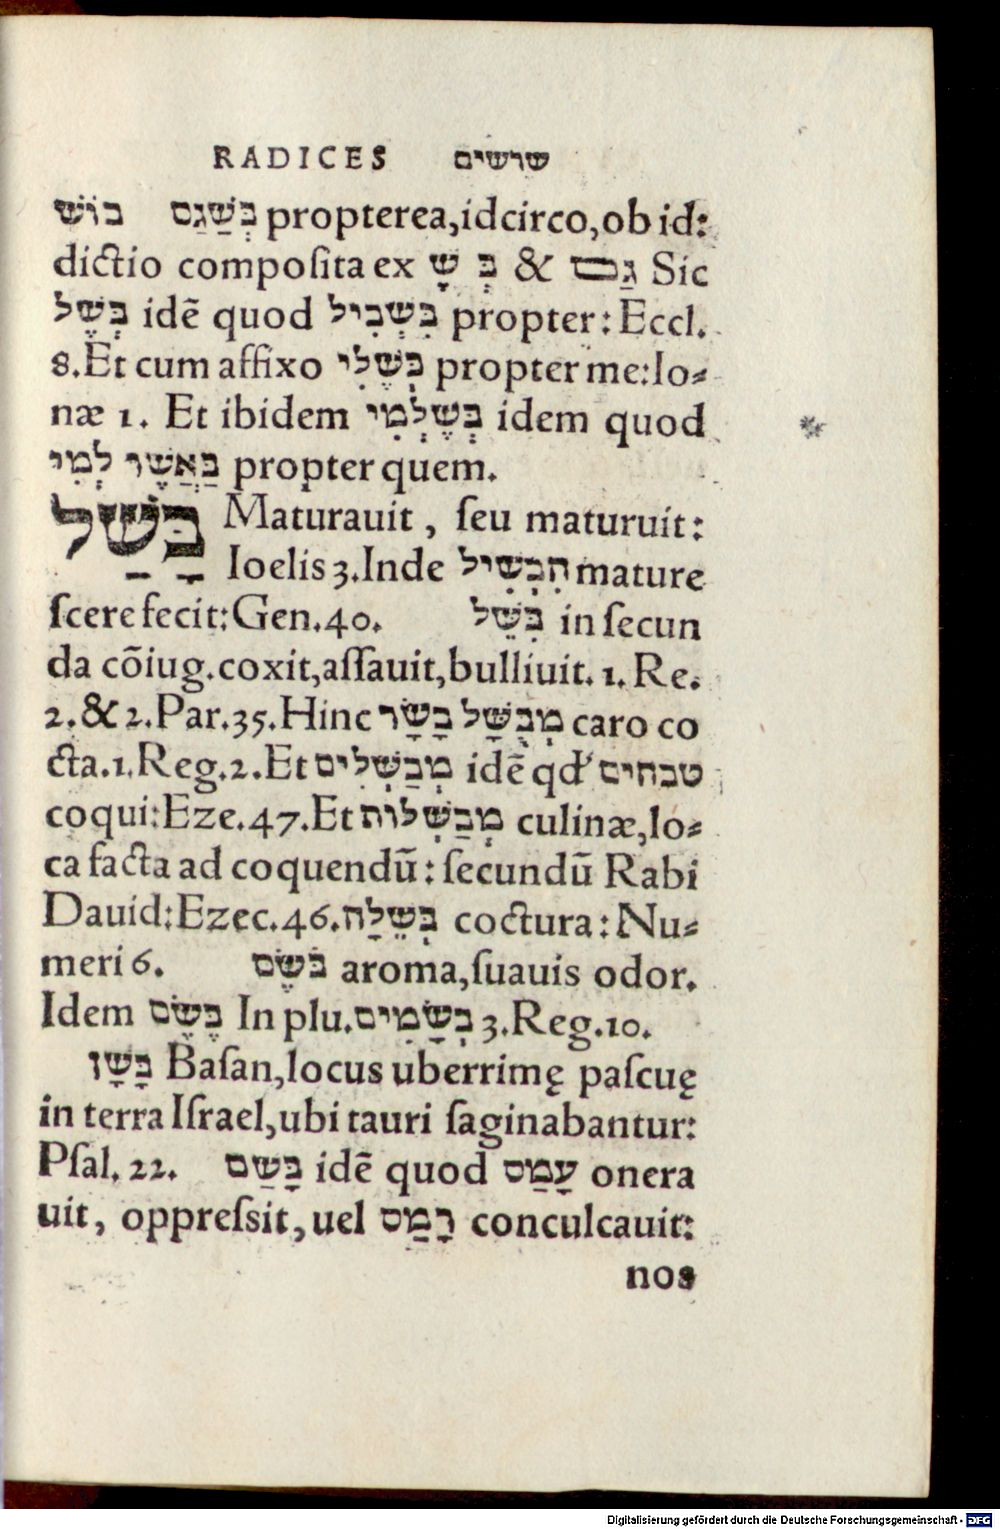 RADICES שרשים
בוֹשׁ בְּשַׁגַּם propterea,idcirco,ob id:
dictio composita ex בְּ שָׁ & גַּם Sic
בְּשֶׁל idē quod בִּשְׁבִיל propter: Eccl.
8.Et cum affixo בְּשֶׁלִּי propter me:Io⸗
næ 1. Et ibidem בְּשֶׁלְּמִי idem quod
בַּאֲשֶׁר לְמִי propter quem.
בָּשַׁל Maturauit, ſeu maturuit:
Ioelis 3.Inde הִבְשִׁיל mature
ſcere fecit:Gen.40. בִּשֵּׁל in ſecun
da cōiug.coxit,aſſauit,bulliuit. 1. Re.
2.& 2.Par.35.Hinc מְבֻשָּׁל בָּשָׂר caro co
cta.1.Reg.2.Et מְבַשְּׁלִים idē qd טבחים
coqui:Eze.47.Et מְבַשְּׁלוֹת culinæ,lo⸗
ca facta ad coquendū: ſecundū Rabi
Dauid:Ezec.46. בְּשֵׁלָה coctura: Nu⸗
meri 6. בֹּשֶׂם aroma,ſuauis odor.
Idem בֶּשֶׂם In plu. בְּשָׂמִים 3.Reg.10.
בָּשָׁן Baſan,locus uberrimę paſcuę
in terra Iſrael,ubi tauri ſaginabantur:
Pſal. 22. בָּשַׁם idē quod עָמַס onera
uit, oppreſsit, uel רָמַס conculcauit:
nos
Digitalisierung gefördert durch die Deutsche Forschungsgemeinschaft - DFG